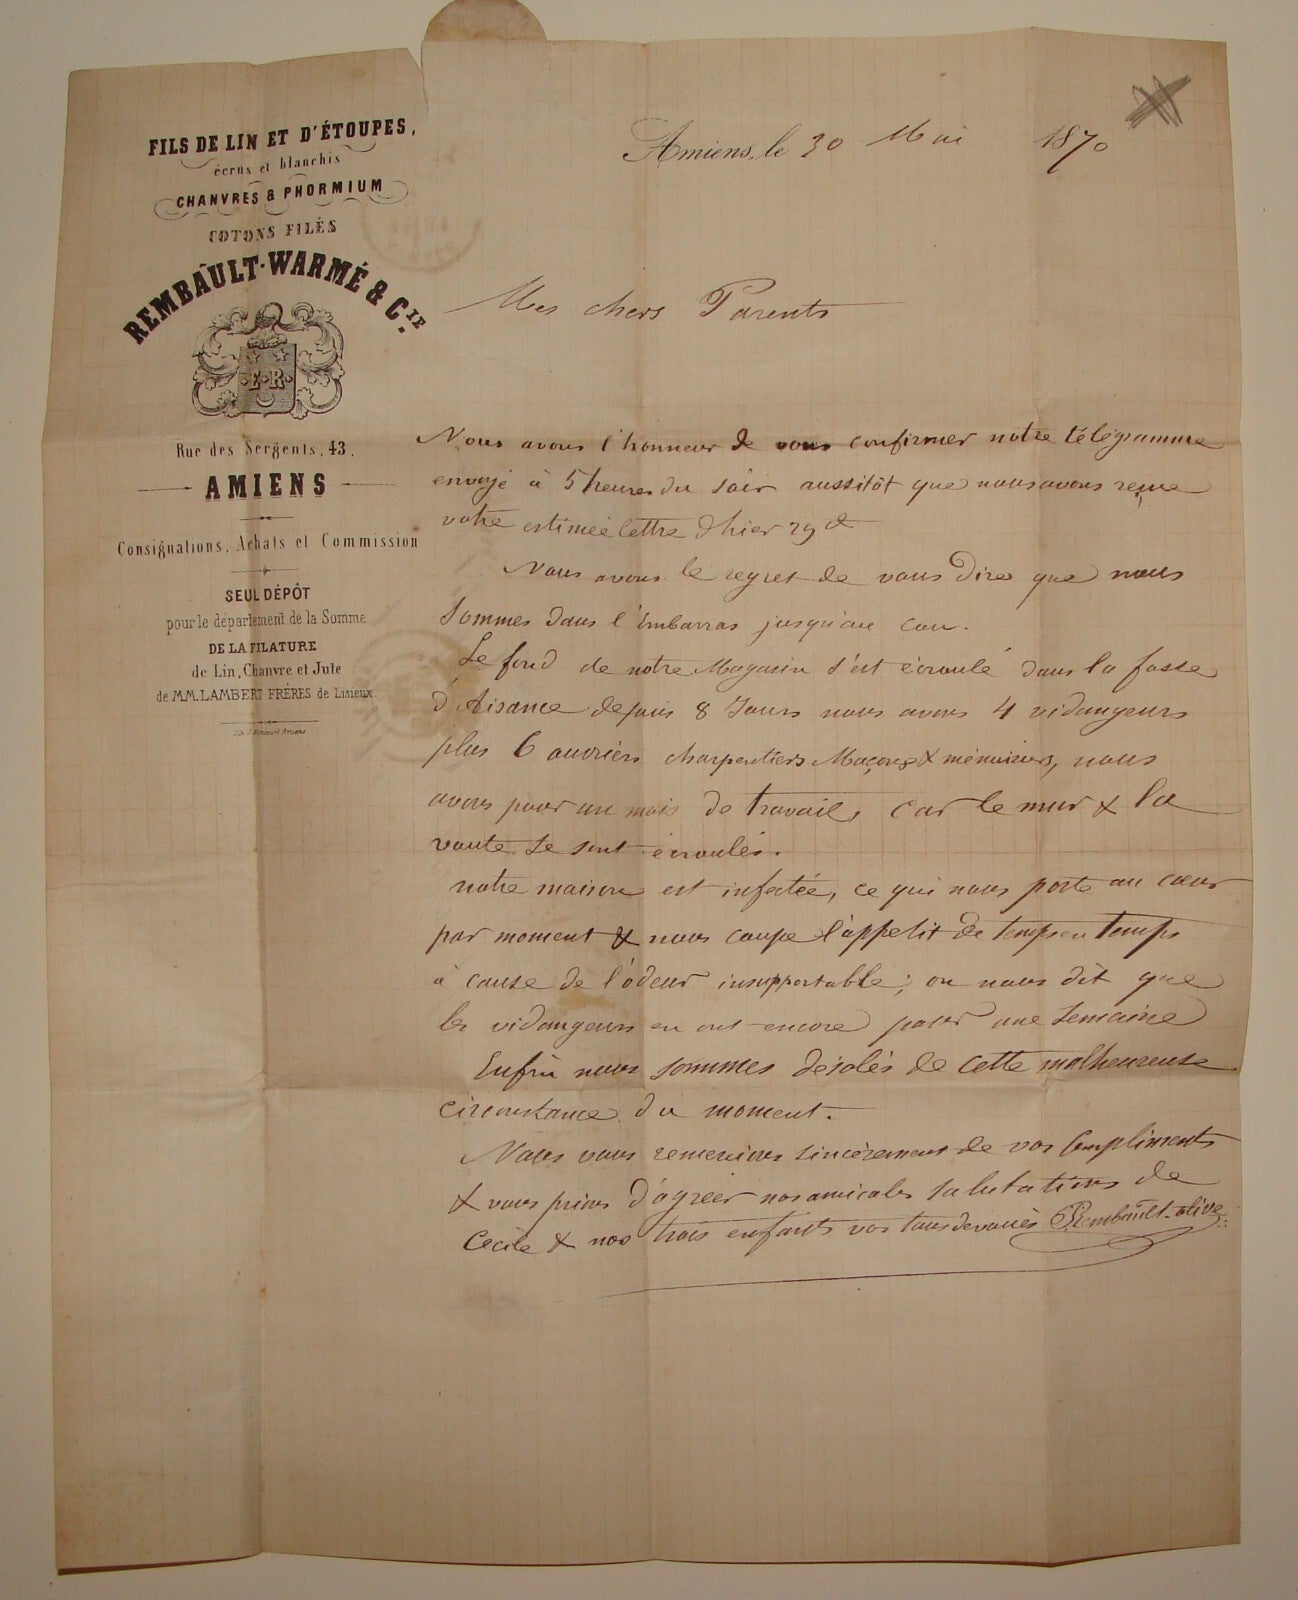 FILS DE LIN ET D'ÉTOUPES,
écrus et blanchis
CHANVRES & PHORMIUM
COTONS FILÉS
REMBAULT-WARMÉ & CIE.
E.R.
Rue des Sergents, 43,
AMIENS
Consignations, Achats et Commission
SEUL DÉPÔT
pour le département de la Somme
DE LA FILATURE
de Lin, Chanvre et Jute
de MM. LAMBERT FRÈRES de Lisieux.
Amiens, le 30 Mai 1870
Mes chers Parents
Nous avons l'honneur de vous confirmer notre télégramme
envoyé à 5 heures du soir aussitôt que nous avons reçue
votre estimée lettre d'hier 29 ct
Nous avons le regret de vous dire que nous
sommes dans l'embarras jusqu'au cou.
Le fond de notre Magasin s'est écroulé dans la fosse
d'Aisance depuis 8 Jours nous avons 4 vidangeurs
plus 6 ouvriers charpentiers Maçons & ménuisiers, nous
avons pour un mois de travail, car le mur & la
voute se sont écroulés.
notre maison est infectée, ce qui nous porte au cœur
par moment & nous coupe l'appetit de temps en temps
à cause de l'ôdeur insupportable; on nous dit que
les vidangeurs en ont encore pour une semaine
Enfin nous sommes désolés de cette malheureuse
circonstance du moment.
Nous vous remercions sincèrement de vos compliments
& vous prions d'agréer nos amicales salutations de
Cécile & nos trois enfants vos tous dévoués Rembault-olive